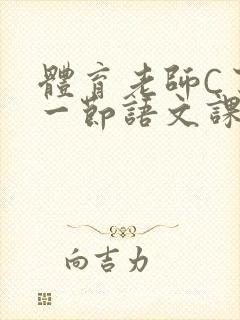 體育老師C
一節語文課
向吉力